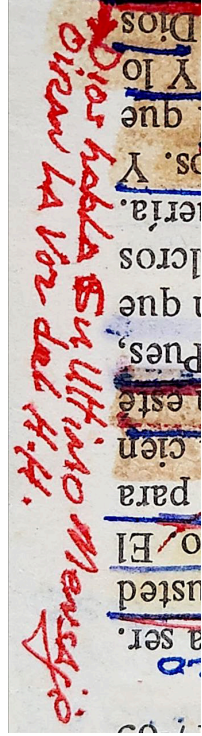 Dios habla En Ultimo Mensajio
Oiran LA Voz del H.H.
a ser.
usted
El
para
cien
este
Pues,
que
lcros
ería.
Y
que
Y lo
Dios